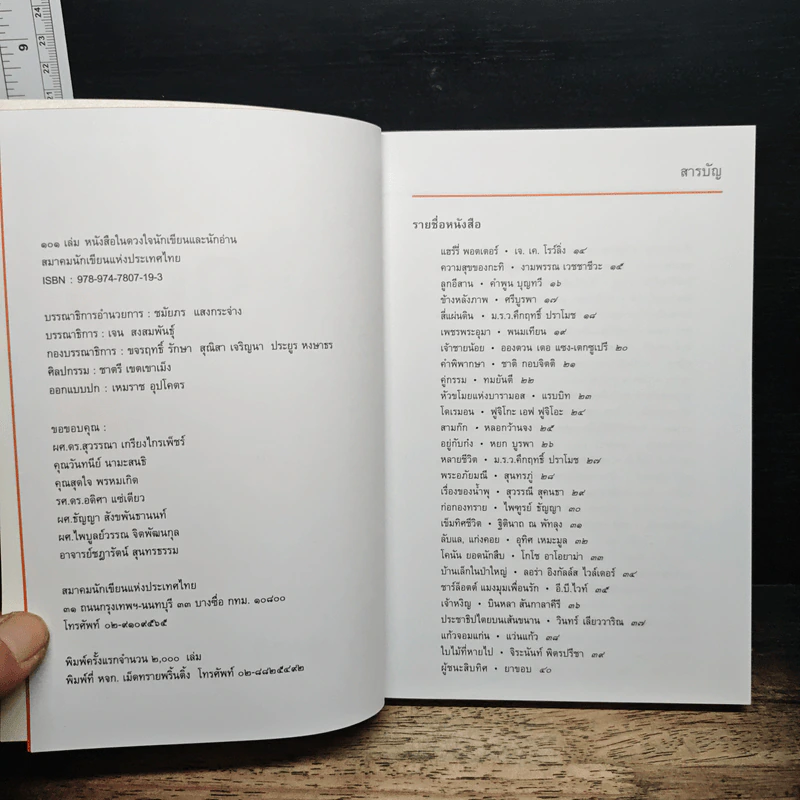 9
24
23
22
21
๑๐๑ เล่ม หนังสือในดวงใจนักเขียนและนักอ่าน
สมาคมนักเขียนแห่งประเทศไทย
ISBN : 978-974-7807-19-3
บรรณาธิการอำนวยการ : ชมัยภร แสงกระจ่าง
บรรณาธิการ : เจน สงสมพันธุ์
กองบรรณาธิการ : ขจรฤทธิ์ รักษา สุณิสา เจริญนา ประยูร หงษาธร
ศิลปกรรม : ชาตรี เขตเขาเม็ง
ออกแบบปก : เหมราช อุปโคตร
ขอขอบคุณ :
ผศ.ดร.สุวรรณา เกรียงไกรเพ็ชร์
คุณวันทนีย์ นามะสนธิ
คุณสุดใจ พรหมเกิด
รศ.ดร.อดิศา แซ่เตียว
ผศ.ธัญญา สังขพันธานนท์
ผศ.ไพบูลย์วรรณ จิตพัฒนกุล
อาจารย์ชฎารัตน์ สุนทรธรรม
สมาคมนักเขียนแห่งประเทศไทย
๓๑ ถนนกรุงเทพฯ-นนทบุรี ๓๓ บางซื่อ กทม. ๑๐๘๐๐
โทรศัพท์ ๐๒-๙๑๐๙๕๖๕
พิมพ์ครั้งแรกจำนวน ๒,๐๐๐ เล่ม
พิมพ์ที่ หจก. เม็ดทรายพริ้นติ้ง โทรศัพท์ ๐๒-๘๘๒๕๔๙๒
สารบัญ
รายชื่อหนังสือ
แฮร์รี่ พอตเตอร์ • เจ. เค. โรว์ลิ่ง ๑๔
ความสุขของกะทิ • งามพรรณ เวชชาชีวะ ๑๕
ลูกอีสาน • คำพูน บุญทวี ๑๖
ข้างหลังภาพ • ศรีบูรพา ๑๗
สี่แผ่นดิน • ม.ร.ว.คึกฤทธิ์ ปราโมช ๑๘
เพชรพระอุมา • พนมเทียน ๑๙
เจ้าชายน้อย • อองตวน เดอ แซง-เตกซูเปรี ๒๐
คำพิพากษา • ชาติ กอบจิตติ ๒๑
คู่กรรม • ทมยันตี ๒๒
หัวขโมยแห่งบารามอส • แรบบิท ๒๓
โดเรมอน • ฟูจิโกะ เอฟ ฟูจิโอะ ๒๔
สามก๊ก • หลอกว้านจง ๒๕
อยู่กับก๋ง • หยก บูรพา ๒๖
หลายชีวิต • ม.ร.ว.คึกฤทธิ์ ปราโมช ๒๗
พระอภัยมณี • สุนทรภู่ ๒๘
เรื่องของน้ำพุ • สุวรรณี สุคนธา ๒๙
ก่อกองทราย • ไพฑูรย์ ธัญญา ๓๐
เข็มทิศชีวิต • ฐิตินาถ ณ พัทลุง ๓๑
ลับแล, แก่งคอย • อุทิศ เหมะมูล ๓๒
โคนัน ยอดนักสืบ • โกโช อาโอยาม่า ๓๓
บ้านเล็กในป่าใหญ่ • ลอร่า อิงกัลล์ส ไวล์เดอร์ ๓๔
ชาร์ล็อตต์ แมงมุมเพื่อนรัก • อี.บี.ไวท์ ๓๕
เจ้าหงิญ • บินหลา สันกาลาคีรี ๓๖
ประชาธิปไตยบนเส้นขนาน • วินทร์ เลียววาริณ ๓๗
แก้วจอมแก่น • แว่นแก้ว ๓๘
ใบไม้ที่หายไป • จิระนันท์ พิตรปรีชา ๓๙
ผู้ชนะสิบทิศ • ยาขอบ ๔๐